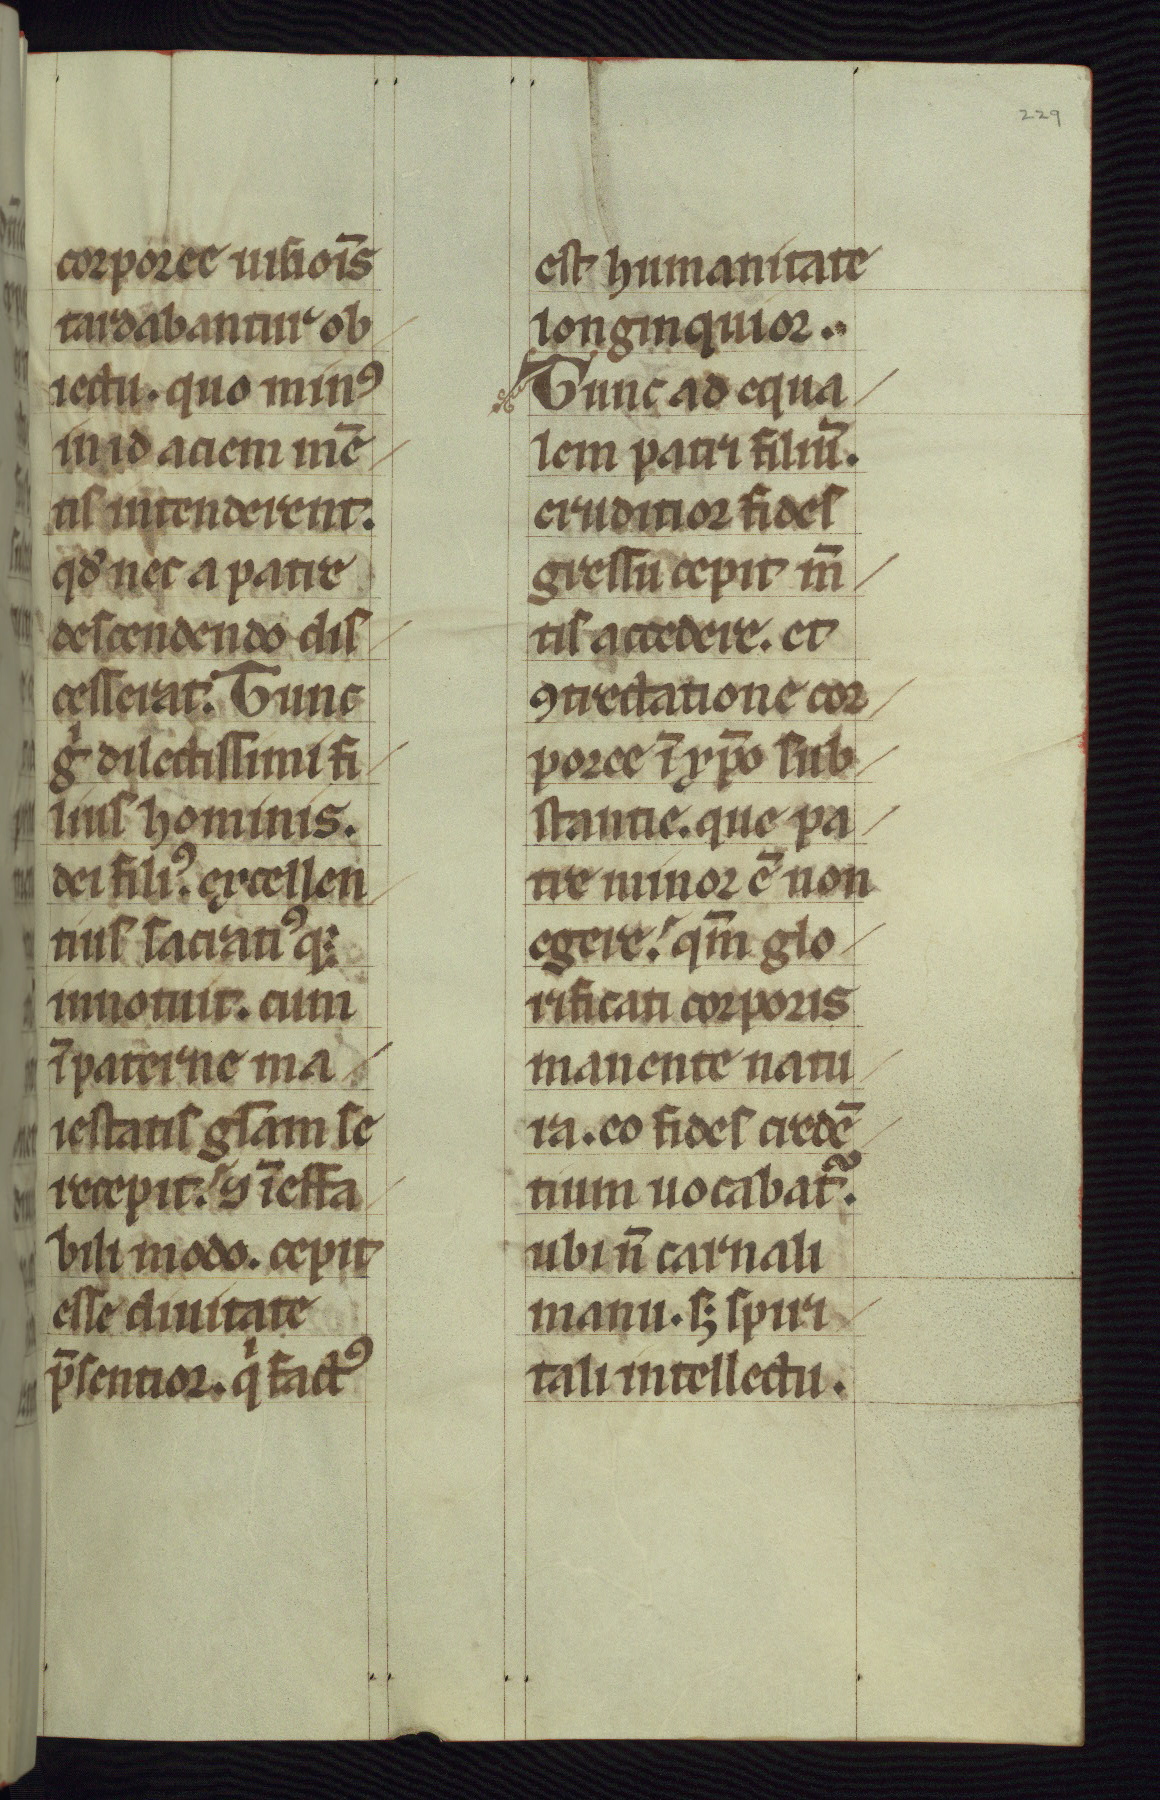 229
corporee uisiōis
tardabantur ob
iectu. quo minꝰ
in id aciem mē
tis intenderent.
qđ nec a patre
descendendo dis
cesserat. Tunc
gͥ dilectissimi fi
lius hominis.
dei filiꝰ. excellen
tius sacratiꝰqꝫ
innotuit. cum
ī paterne ma
iestatis gl̄am se
recepit. ꝯ īeffa
bili modo. cepit
esse diuitate
p̄sentior. qͥ factꝰ
est humanitate
longinquior.
Tunc ad equa
lem patri filiū.
eruditior fides
gressu cepit m̄
tis accedere. et
ꝯtrectatione cor
poree ī xp̄o sub
stantie. que pa
tre minor ē non
egere. qm̄ glo
rificati corporis
manente natu
ra. eo fides credē
tium uocabat᷑.
ubi n̄ carnali
manu. sꝫ spiri
tali intellectu.